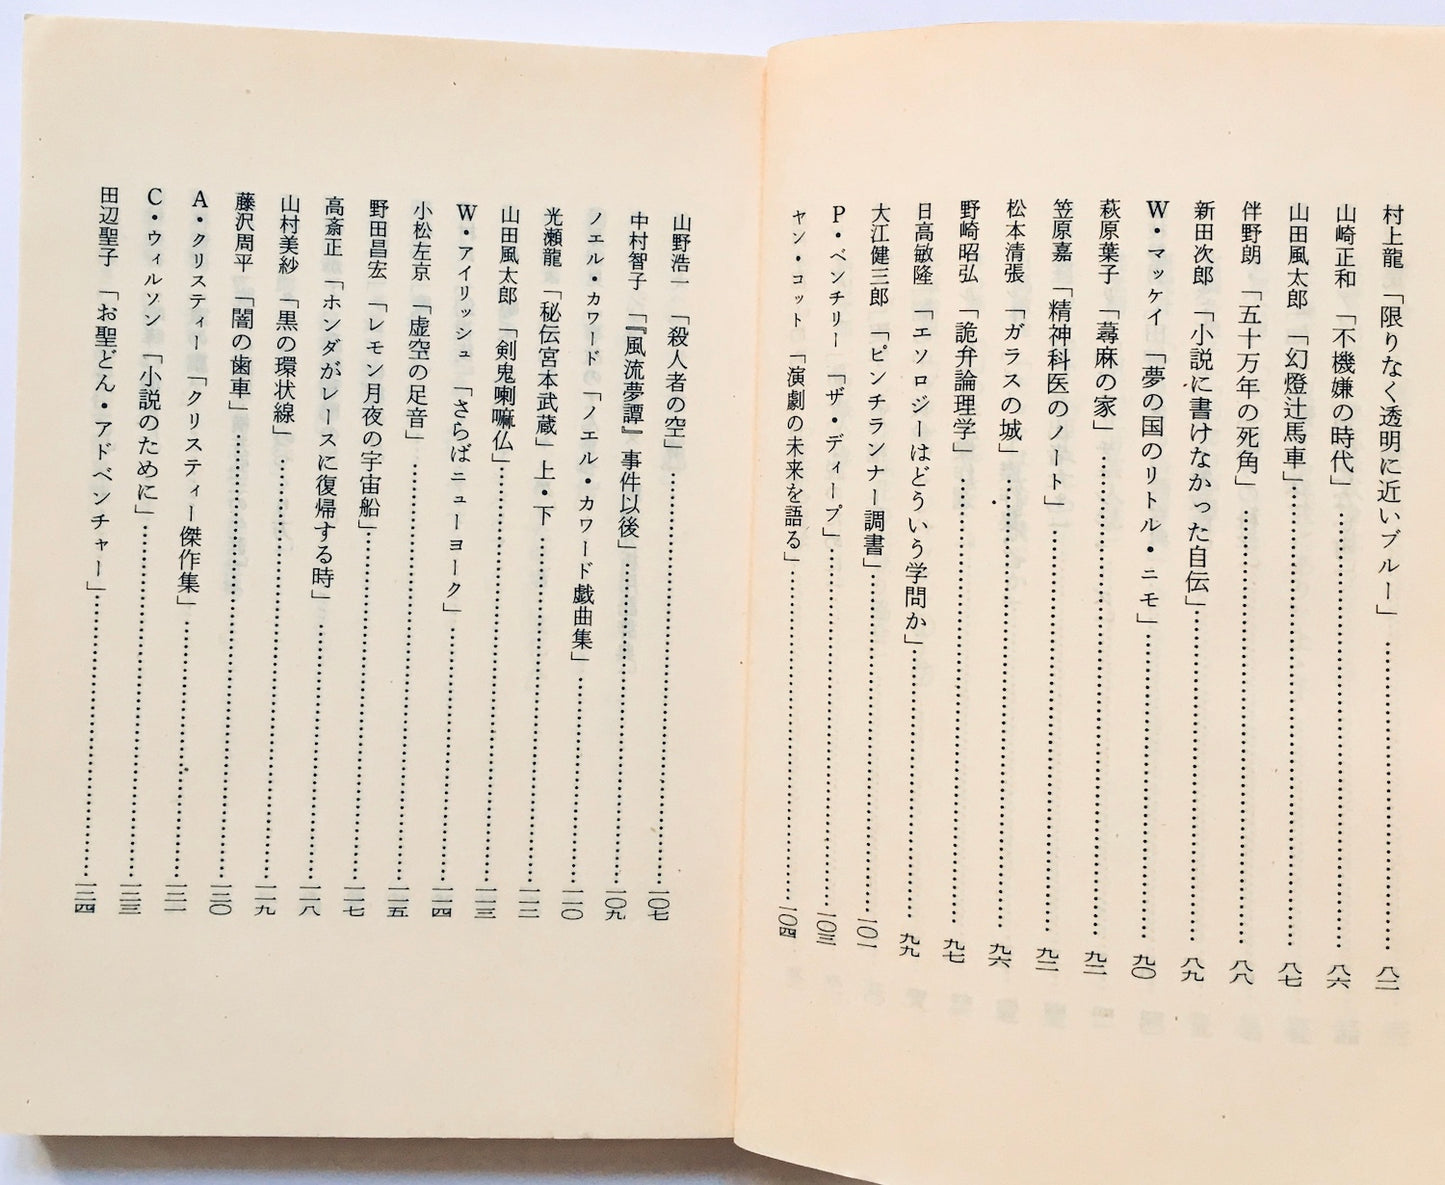 村上龍「限りなく透明に近いブルー」……八二
山崎正和「不機嫌の時代」……八六
山田風太郎「幻燈辻馬車」……八七
伴野朗「五十万年の死角」……八八
新田次郎「小説に書けなかった自伝」……八九
W・マッケイ「夢の国のリトル・ニモ」……九〇
萩原葉子「蕁麻の家」……九二
笠原嘉「精神科医のノート」……
松本清張「ガラスの城」……九六
野崎昭弘「詭弁論理学」……九七
日高敏隆「エソロジーはどういう学問か」……九九
大江健三郎「ピンチランナー調書」……一〇一
P・ベンチリー「ザ・ディープ」……一〇三
ヤン・コット「演劇の未来を語る」……一〇四
山野浩一「殺人者の空」……一〇七
中村智子「『風流夢譚』事件以後」……一〇九
ノエル・カワード「ノエル・カワード戯曲集」……一一〇
光瀬龍「秘伝宮本武蔵」上・下……一一二
山田風太郎「剣鬼喇嘛仏」……一一三
W・アイリッシュ「さらばニューヨーク」……一一四
小松左京「虚空の足音」……一一五
野田昌宏「レモン月夜の宇宙船」……一一七
高斎正「ホンダがレースに復帰する時」……一一八
山村美紗「黒の環状線」……一一九
藤沢周平「闇の歯車」……一二〇
A・クリスティー「クリスティー傑作集」……
C・ウィルソン「小説のために」……一二三
田辺聖子「お聖どん・アドベンチャー」……一二四